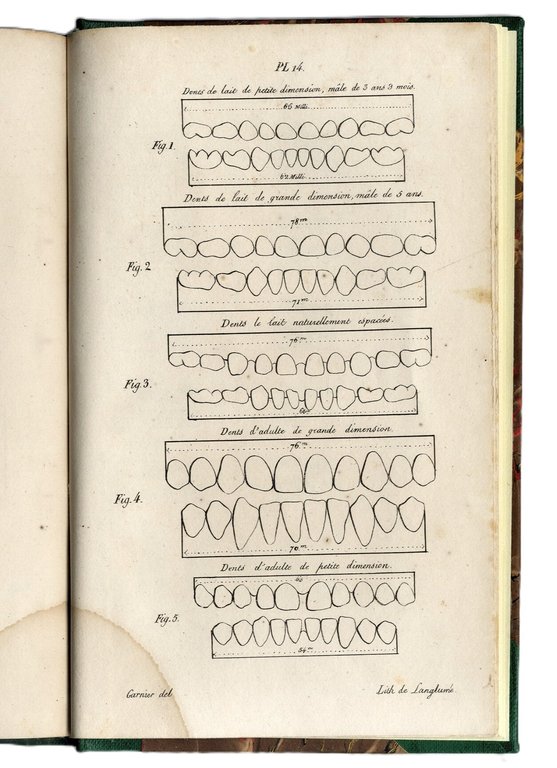 PL 14.
Dents de lait de petite dimension, mâle de 3 ans 9 mois.
66 Milli.
Fig. 1.
62 Milli.
Dents de lait de grande dimension, mâle de 5 ans.
78 m
Fig. 2
71 m
Dents le lait naturellement espacées.
76 m
Fig. 3.
Dents d'adulte de grande dimension.
76 m
Fig. 4.
70 m
Dents d'adulte de petite dimension.
Fig. 5.
54 m
Garnier del
Lith de Langlumé